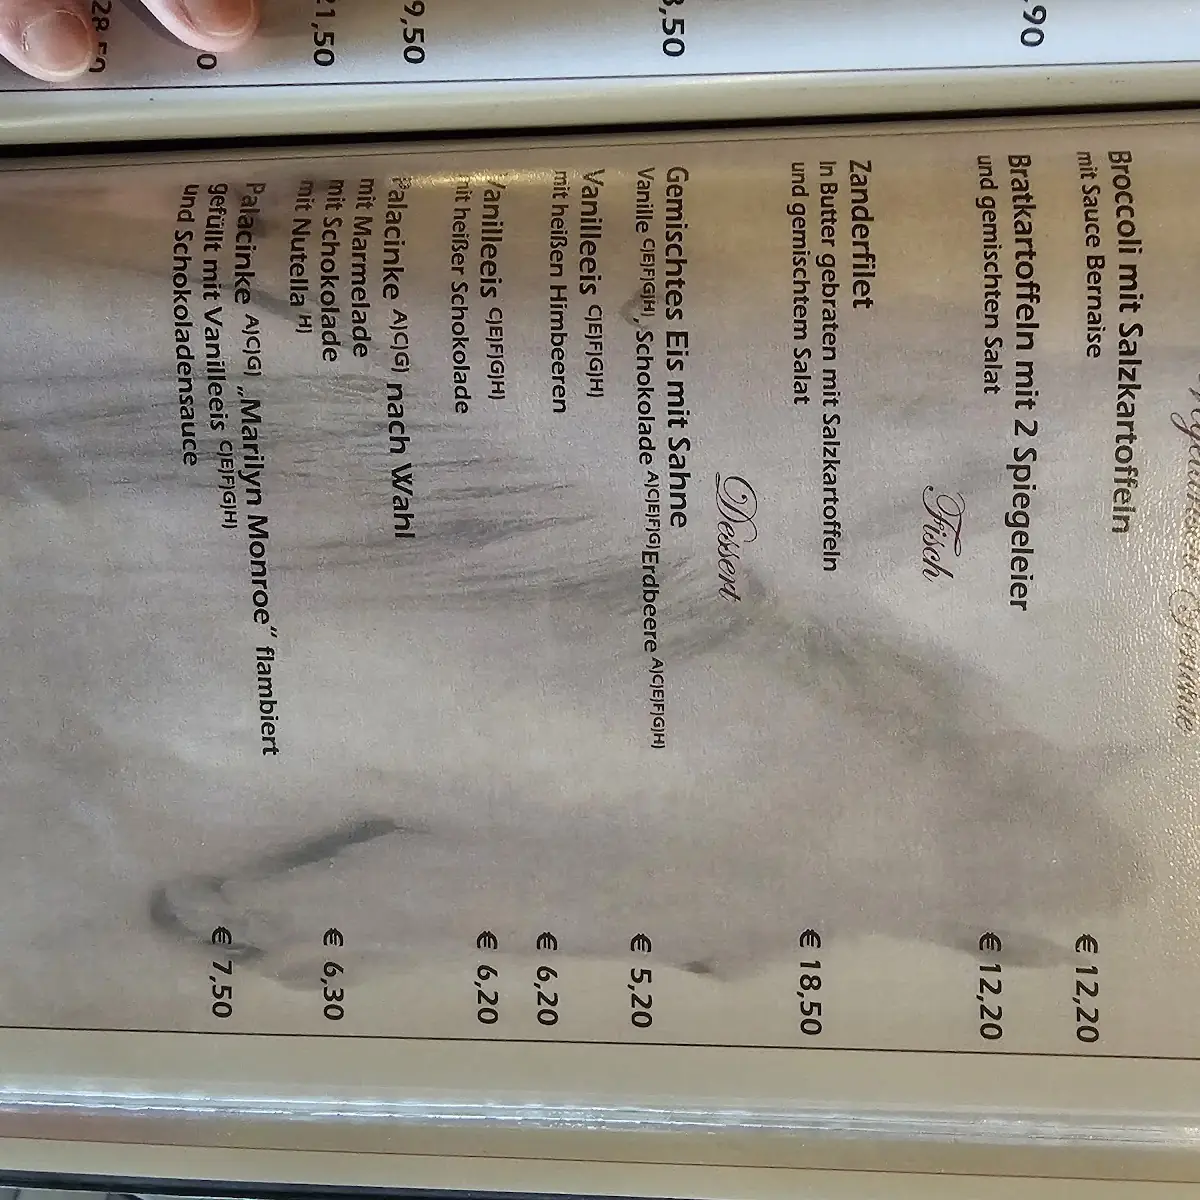 Broccoli mit Salzkartoffeln
mit Sauce Bernaise € 12,20
Bratkartoffeln mit 2 Spiegeleier
und gemischten Salat € 12,20
Fisch
Zanderfilet
In Butter gebraten mit Salzkartoffeln
und gemischtem Salat € 18,50
Dessert
Gemischtes Eis mit Sahne
Vanille C)E)F)G)H), Schokolade A)C)E)F)G)Erdbeere A)C)E)F)G)H) € 5,20
Vanilleeis C)E)F)G)H)
mit heißen Himbeeren € 6,20
Vanilleeis C)E)F)G)H)
mit heißer Schokolade € 6,20
Palacinke A)C)G) nach Wahl
mit Marmelade
mit Schokolade € 6,30
mit Nutella H)
Palacinke A)C)G) „Marilyn Monroe“ flambiert
gefüllt mit Vanilleeis C)E)F)G)H) € 7,50
und Schokoladensauce
,90
8,50
9,50
21,50
28,50